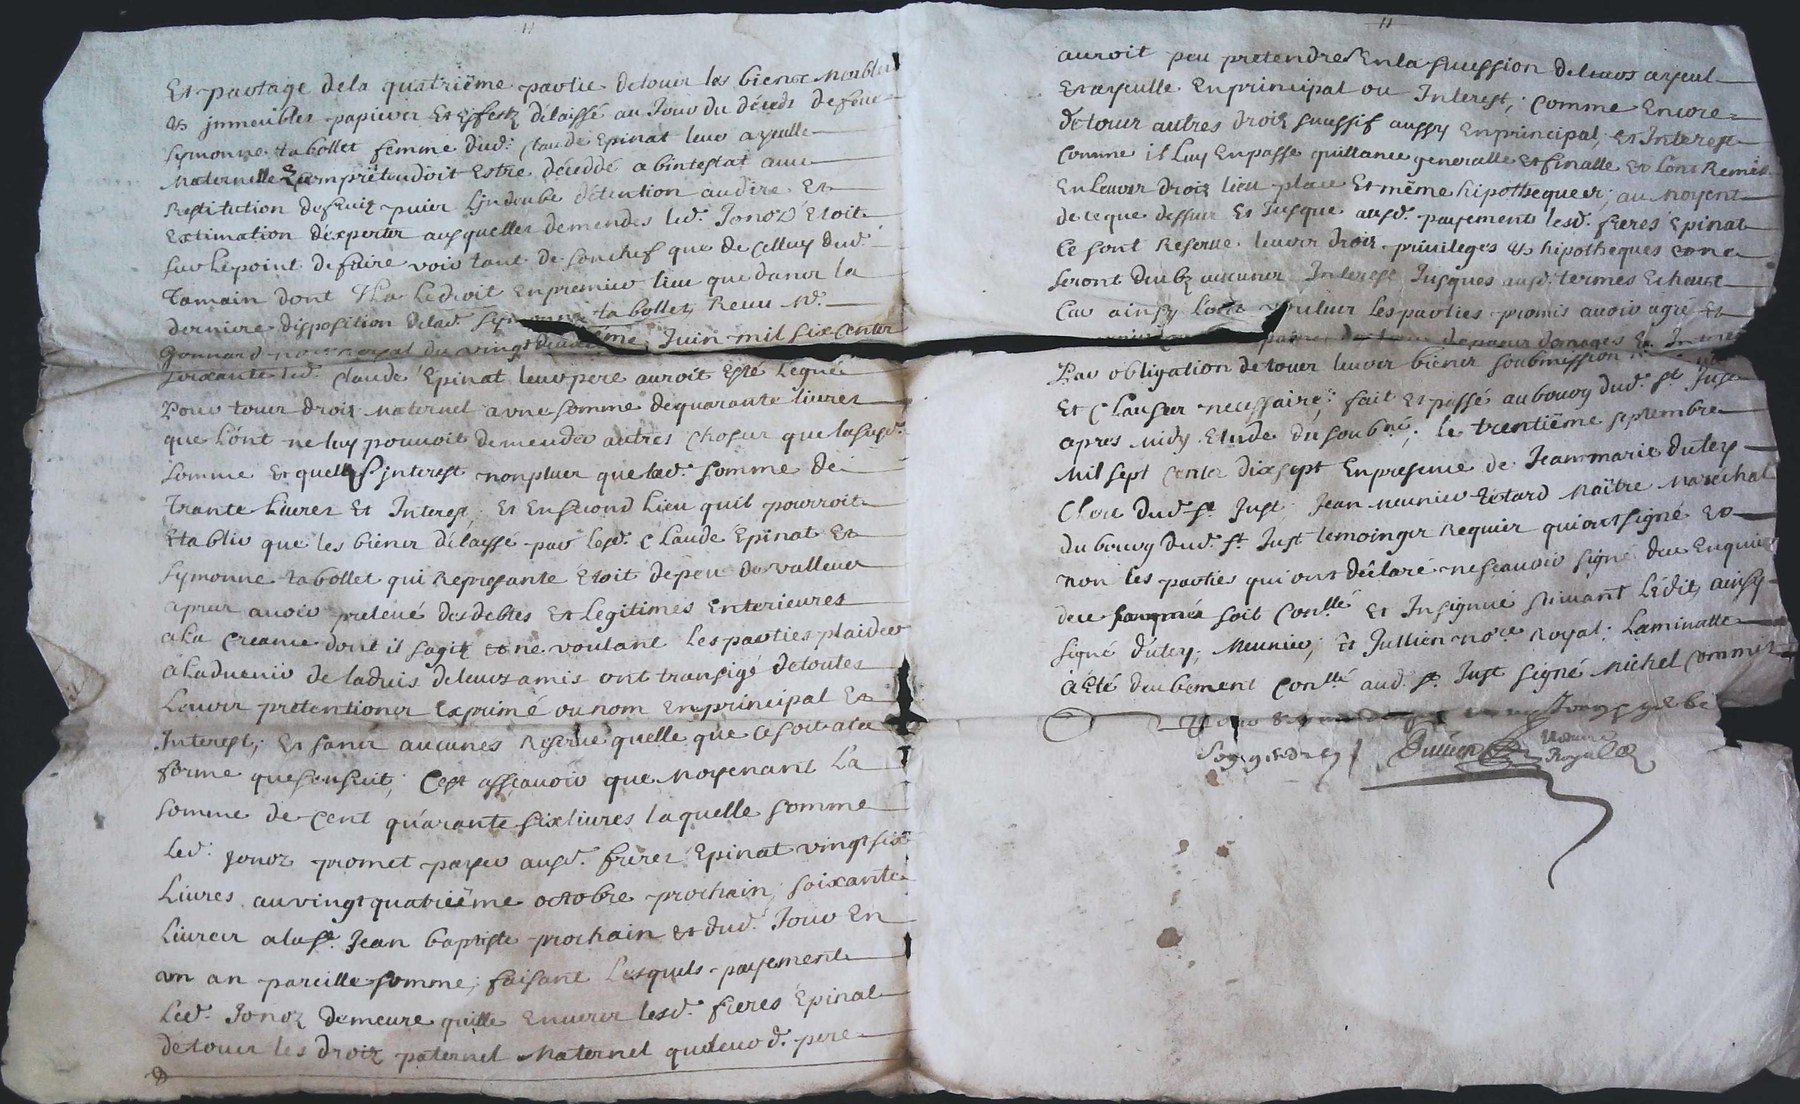 Et partage dela quatriëme partie detouts les biens Meubles
& jmmeubles papiers Et Effectz délaissé au Jour du décéds defeue
Symonne tabollet femme dud: Claude Epinat leur ayeulle
Maternelle prëtendoit Estre décéddé abintestat avec
Restitution defruiz puis détention audire Et
Extimation dèxperts ausquelles demendes led: Jonoz Etoit
Sur lepoint defaire voir tant de sonchef que de Celluy dud:
Tamain dont Il a ledroit Enpremier lieu que dans la
derniere disposition delad: Symonne tabollet Receu Me
Gonnard nore Royal du vingtdeuxiéme Juin mil six cents
soixante led: Claude Epinat leur pere auroit Esté Legué
Pour tous droiz Maternel avne somme dequarante livres
que lònt ne luy pouvoit demender autres Choses que lasusd:
Somme Et quelle jnterest nonplus que lad: somme de
Trante livres Et Interest; Et Ensecond Lieu quil pourroit
Etablir que les biens délaissé par lesd: Claude Epinat Et
Symonne tabollet qui Represante Etoit depeu de valleur
apres avoir prelevé des debtes Et Legitimes Enterieures
ala Creance dont il sagit Et ne voulant Les parties plaider
aladvenir de ladvis deleurs amis ont transigé detoutes
Leurs prétentions Exprimé ou nom Enprincipal Et
Interest; Et sans aucunes Reserve quelle que cesoit ala
forme quesensuit; Cest assçavoir que Moyenant La
somme de Cent quarante six livres laquelle somme
Led: Jonoz promet payer ausd: freres Epinat vingt six
Livres auvingtquatriëme octobre prochain, soixante
Livres ala st. Jean baptiste prochain et dud: Jour En
un an pareille somme; faisant Lesquels payement
Led: Jonoz demeure quitte Envers lesd: freres Epinat
detous les droiz paternel Maternel queleurd: pere
auroit peu pretendre Enla succession deleurs ayeul
Et ayeulle Enprincipal ou Interest; Comme Encore
detous autres droiz sucessif aussy Enprincipal, Et Interest
Comme il Luy Enpasse quittance generalle Et finalle Et Lont Remis
En Leurs droiz lieu place Et même hipotheques; au moyent
de ceque dessus Et Jusque ausd: payement lesd: freres Epinat
Ce sont Reservé leurs droiz privileges & hipotheques
seront deubz aucuns Interest Jusques ausd: termes Echeut
Car ainsy Les parties promis avoir agré Et
peine de tous despens domages Et Interest
Par obligation detous leurs biens soubmission
Et Clauses necessaire; fait Et passé aubourg dud: st. Just
apres Midy Etude du soubné; le trentiëme septembre
Mil sept Cents dixsept Enpresence de Jeanmarie duley
Clerc dud: st. Just Jean Meunier Maître Maréchal
dubourg dud: st. Just temoings Requis quiont signé Et
non les parties qui ont déclaré nesçavoir signé de ce Enquis
soit Conllé Et Insignué suivant Lédit, ainsy
signé duley, Meunier, & Jullien nore Royal; Laminutte
à Eté deubement Conllé aud: st. Just signé Michel Commis
Royal